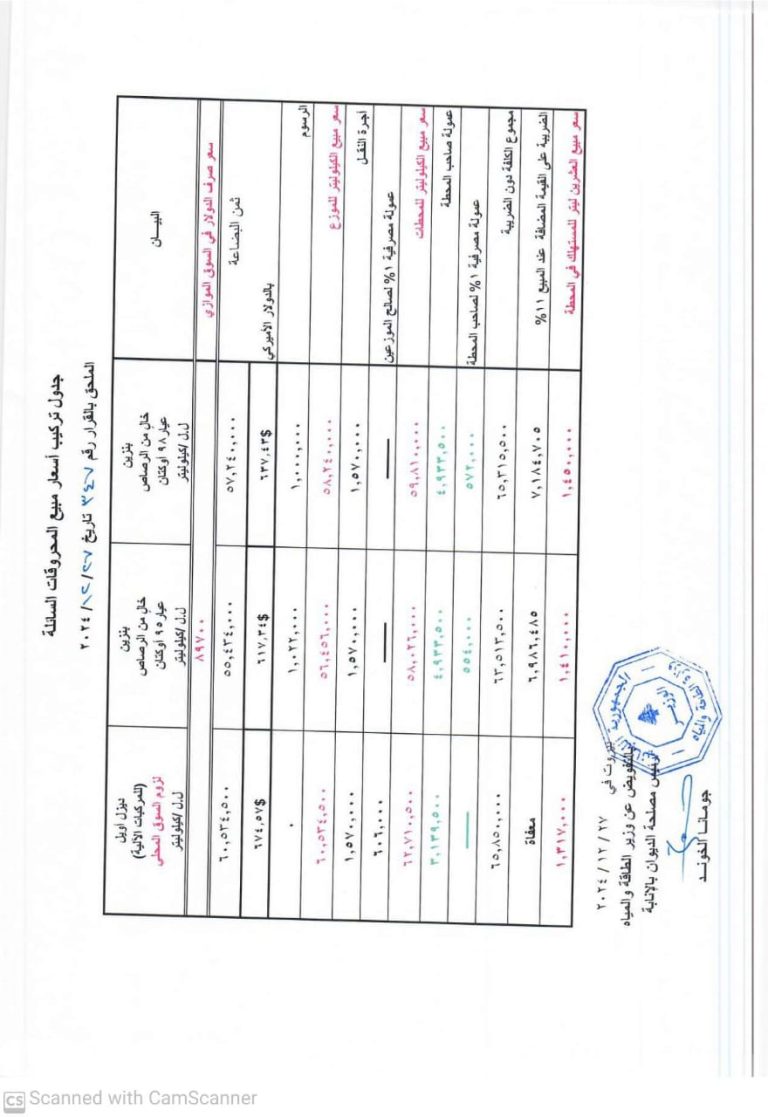 جدول تركيب أسعار مبيع المحروقات السائلة
الملحق بالقرار رقم ٣٤٧ تاريخ ٢٠٢٤/١٢/٢٧
البيـــان
بنزين
خالٍ من الرصاص
عيار ٩٨ أوكتان
ل.ل/كيلوليتر
بنزين
خالٍ من الرصاص
عيار ٩٥ أوكتان
ل.ل/كيلوليتر
ديزل أويل
(للمركبات الآلية)
لزوم السوق المحلي
ل.ل/كيلوليتر
سعر صرف الدولار في السوق الموازي ٨٩٧٠٠
ثمن البضاعة ٥٧,٢٤٠,٠٠٠ ٥٥,٤٣٤,٠٠٠ ٦٠,٥٣٤,٥٠٠
بالدولار الأميركي ٦٣٧,٤٣$ ٦١٧,٣٤$ ٦٧٤,٥٧$
الرسوم ١,٠٠٠,٠٠٠ ١,٠٢٢,٠٠٠ ٠
سعر مبيع الكيلوليتر للموزع ٥٨,٢٤٠,٠٠٠ ٥٦,٤٥٦,٠٠٠ ٦٠,٥٣٤,٥٠٠
أجرة النقل ١,٥٧٠,٠٠٠ ١,٥٧٠,٠٠٠ ١,٥٧٠,٠٠٠
عمولة مصرفية ١% لصالح الموزعين — — ٦٠٦,٠٠٠
سعر مبيع الكيلوليتر للمحطات ٥٩,٨١٠,٠٠٠ ٥٨,٠٢٦,٠٠٠ ٦٢,٧١٠,٥٠٠
عمولة صاحب المحطة ٤,٩٣٣,٥٠٠ ٤,٩٣٣,٥٠٠ ٣,١٣٩,٥٠٠
عمولة مصرفية ١% لصاحب المحطة ٥٧٢,٠٠٠ ٥٥٤,٠٠٠ —
مجموع الكلفة دون الضريبة ٦٥,٣١٥,٥٠٠ ٦٣,٥١٣,٥٠٠ ٦٥,٨٥٠,٠٠٠
الضريبة على القيمة المضافة عند المبيع ١١% ٧,١٨٤,٧٠٥ ٦,٩٨٦,٤٨٥ معفاة
سعر مبيع العشرين ليتر للمستهلك في المحطة ١,٤٥٠,٠٠٠ ١,٤١٠,٠٠٠ ١,٣١٧,٠٠٠
بيروت في ٢٠٢٤/١٢/٢٧
بالتفويض عن وزير الطاقة والمياه
رئيس مصلحة الديوان بالإنابة
جومانا الخونــد
الجمهورية اللبنانية
وزارة الطاقة والمياه
الوزير
CS Scanned with CamScanner